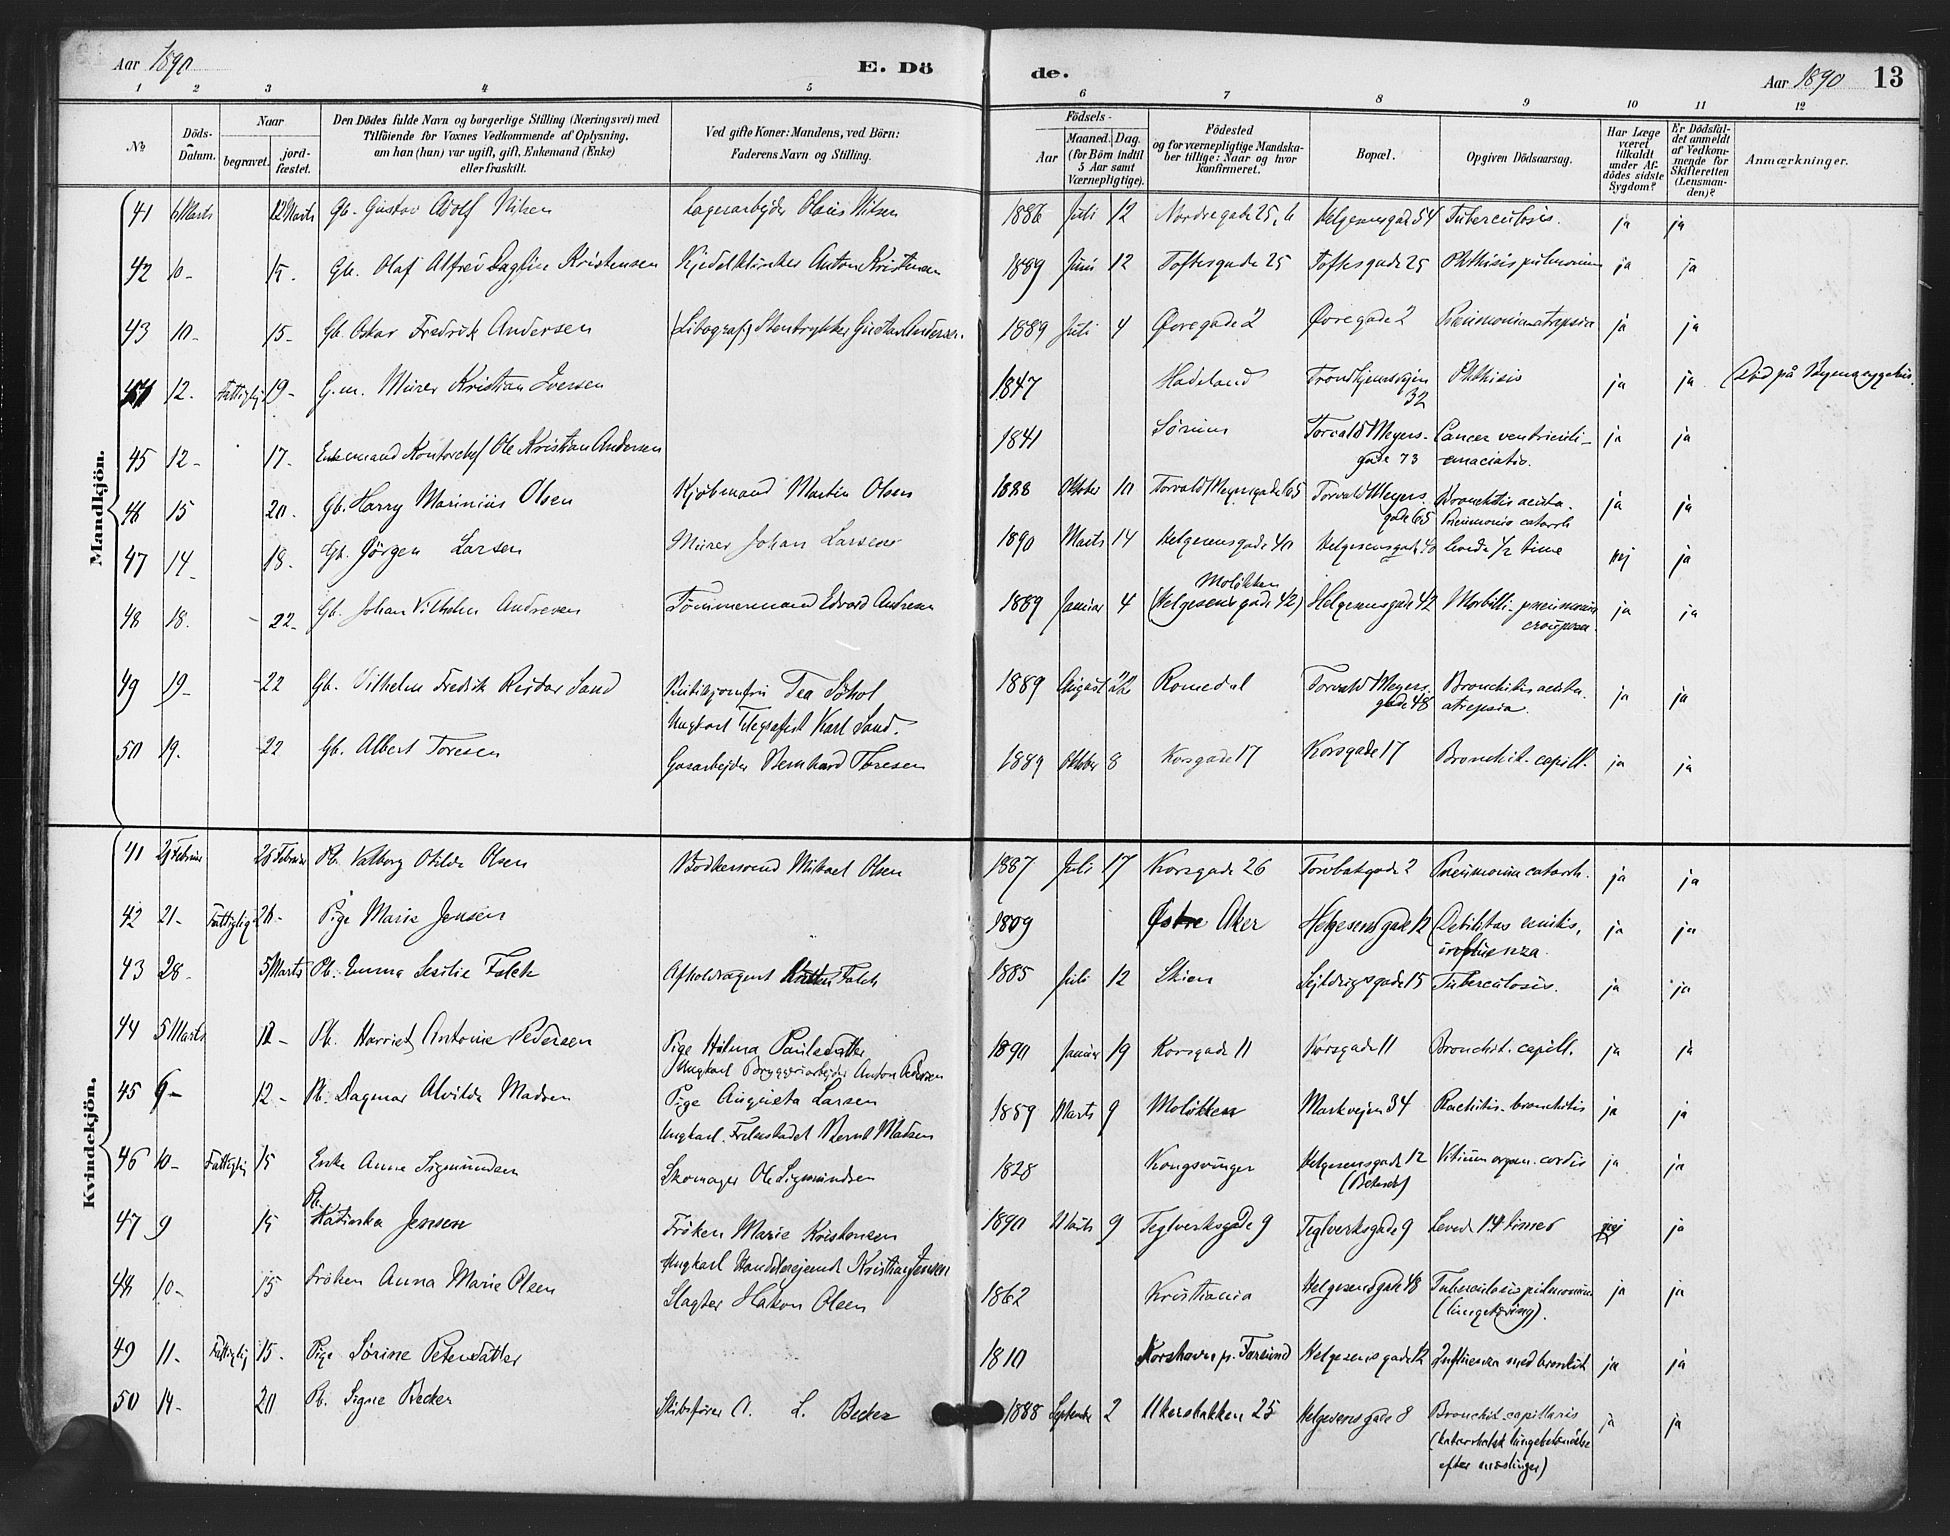 Aar 1890 E. Dö de. Aar 1890 13
1 2 3 4 5 6 7 8 9 10 11 12
No Döds-Datum. Naar begravet. jord-fæstet. Den Dödes fulde Navn og borgerlige Stilling (Næringsvei) med Tilföiende for Voxnes Vedkommende af Oplysning, om han (hun) var ugift, gift, Enkemand (Enke) eller fraskilt. Ved gifte Koner: Mandens, ved Börn: Faderens Navn og Stilling. Födsels- Aar Maaned. Dag. (for Börn indtil 5 Aar samt Værnepligtige). Födested og for værnepligtige Mandskaber tillige: Naar og hvor konfirmeret. Bopæl. Opgiven Dödsaarsag. Har Læge været tilkaldt under Afdödes sidste Sygdom? Er Dödsfaldet anmeldt af Vedkommende for Skifteretten (Lensmanden)? Anmærkninger.
Mandkjön.
41 6 Marts 12 Marts Gb. Gustav Adolf Nilsen Lagerarbejder Olaus Nilsen 1886 Juli 12 Nordregade 25, 6 Helgesensgade 54 Tuberculosis. ja ja
42 10- 15- Gb. Olaf Alfred Kristensen Anton Kristensen 1889 Juni 12 Toftesgade 25 Toftesgade 25 Phthisis pulmonum ja ja
43 10- 15- Gb. Oskar Fredrik Andersen (Litograf) Stentrykker Gustav Andersen. 1889 Juli 4 Øvregade 2 Øvregade 2 Pneumonia atrepsia ja ja
44 12. Fattiglig 19- G.m. Murer Kristian Iversen 1847 Hadeland Trondhjemsvejen 32 Phthisis ja ja Død på
45 12- 17- Enkemand Ole Kristian Andersen 1841 Sørum Torvald Meyers- gade 73 Cancer ventriculi- emaciatio. ja ja
46 15 20- Gb. Harry Marinius Olsen Kjøbmand Martin Olsen 1888 Oktober 10 Torvald Meyersgade 65 Torvald Meyers- gade 65 Bronchitis acuta. Pneumonia catarrh ja ja
47 14- 18- Gb. Jörgen Larsen Murer Johan Larsen 1890 Marts 14 Helgesensgade 40 Helgesensgade 40 levede 1/2 time nej ja
48 18. 22- Gb. Johan Vilhelm Andresen Tømmermand Edvard Andresen 1889 Januar 4 Moløkken (Helgesens gade 42) Helgesensgade 42 Morbilli- pneumonia crouposa. ja ja
49 19- 22 Gb. Vilhelm Fredrik Sand Tea
Ungkarl Telegrafist Karl Sand. 1889 August 22 Romedal Torvald Meyers- gade 48 Bronchitis acuta. atrepsia. ja ja
50 19. 22 Gb. Albert Toresen Gasarbejder Bernhard Toresen 1889 Oktober 8 Korsgade 17 Korsgade 17 Bronchit. capill. ja ja
Kvindekjön.
41 21 Februar 26 Februar Pb. Valborg Otilde Olsen Bødkersvend Mikael Olsen 1887 Juli 17 Korsgade 26 Torvbakgade 2 Pneumonia catarrh. ja ja
42 21- Fattiglig 26- Pige Marie Jensen 1809 Østre Aker Helgesensgade 12 Debilitas senilis, influenza. ja ja
43 28- 5 Marts Pb. Emma Sesilie Falck Afholdsagent Falch 1885 Juli 12 Skien 15 Tuberculosis. ja ja
44 5 Marts 12- Pb. Harriet Antonie Pedersen Pige Hilma Paulsdatter
Ungkarl Bryggeriarbejder Anton Pedersen 1890 Januar 19 Korsgade 11 Korsgade 11 Bronchit. capill. ja ja
45 6- 12- Pb. Dagmar Alvilde Madsen Pige Augusta Larsen
Ungkarl Bernt Madsen 1889 Marts 9 Moløkken Markvejen 34 Rachitis- bronchitis ja ja
46 10- Fattiglig 15 Enke Anne Sigmundsen Skomager Ole Sigmundsen 1828 Kongsvinger Helgesensgade 12 Vitium organ. cordis ja ja
47 9 15 Pb. Katinka Jensen Frøken Marie Kristensen
Ungkarl Kristian Jensen 1890 Marts 9 Teglverksgade 9 Teglverksgade 9 Leved 14 timer nej ja
48 10- 15 Frøken Anna Marie Olsen Slagter Hakon Olsen 1862 Kristiania Helgesensgade 48 Tuberculosis pulmonum (lungetæring). ja ja
49 11- Fattiglig 15- Pige Sörine Petersdatter 1810 Korshavn p. Farsund Helgesensgade 12 Influenza med bronkit ja ja
50 14- 20 Pb. Signe Becker Skibsfører A. L. Becker 1888 September 2 Akersbakken 25 Helgesensgade 8 Bronchit. capillaris (katarrhalsk lungebetændelse efter mæslinger) ja ja